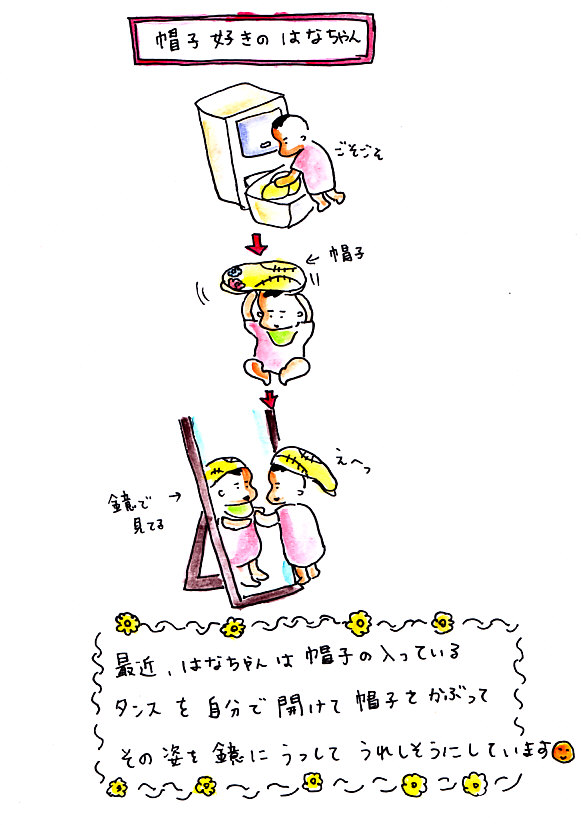 帽子好きの はなちゃん
ごそごそ
← 帽子
えへっ
鏡で →
見てる
最近、はなちゃんは 帽子の入っている
タンスを 自分で 開けて 帽子をかぶって
その姿を 鏡に うつして うれしそうにしています